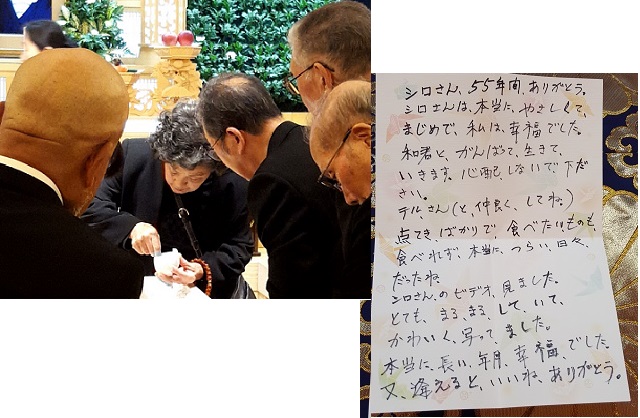 シロさん、55年間、ありがとう。
シロさんは、本当に、やさしくて、
まじめで、私は、幸福でした。
和君と、がんばって、生きて、
いきます。心配しないで、下だ
さい。
テルさん(と、仲良く、してね。)
点てき、ばかりで、食べたいものも、
食べれず、本当に、つらい、日々、
だったね。
シロさん、のビデオ、見ました。
とても、まる、まる、して、いて、
かわいく、写って、ました。
本当に、長い、年月、幸福、でした。
又、逢えると、いいね、ありがとう。